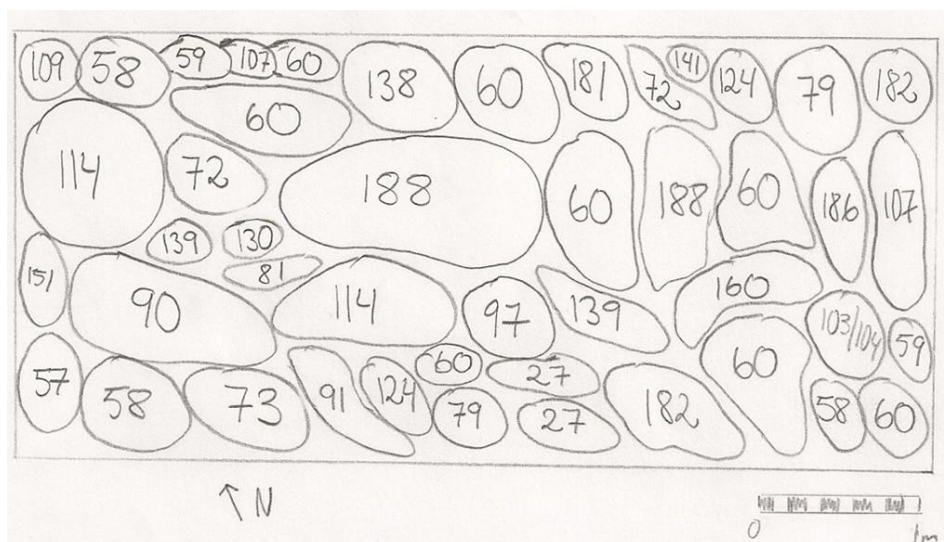 109 58 59 107 60 138 60 181 72 141 124 79 182
60
114 72 188 60 188 60 186 107
139 130
151 81
90 114 97 139 160 103/104 59
57 58 73 91 124 60 27 60
79 27 182 58 60
↑ N
0 1m